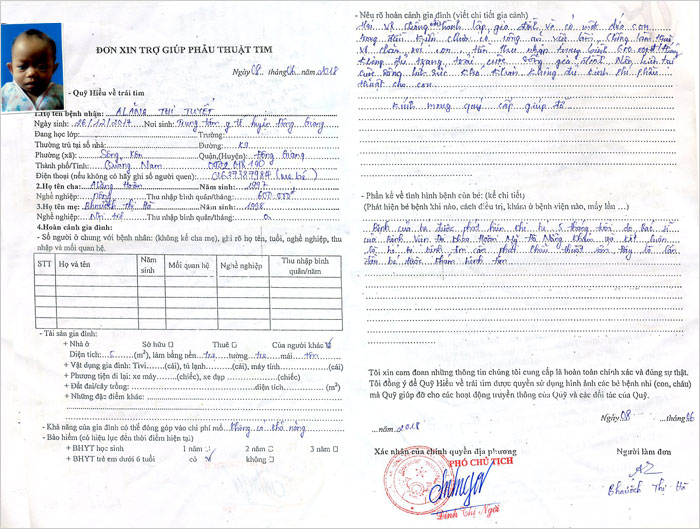 ĐƠN XIN TRỢ GIÚP PHẪU THUẬT TIM
Ngày 08 tháng 06 năm 2018
- Quỹ Hiểu về trái tim
1.Họ tên bệnh nhân: ALĂNG THỊ TUYẾT
Ngày sinh: 26/12/2017 Nơi sinh: Trung tâm y tế huyện Đông Giang
Đang học lớp: Trường:
Thường trú tại số nhà: Đường: K9
Phường (xã): Sông Kôn Quận,(Huyện): Đông Giang
Thành phố/Tỉnh: Quảng Nam
Điện thoại (nếu không có hãy ghi số người quen): 01637387987 (mẹ bé)
2.Họ tên cha: Alăng Hoàn Năm sinh: 1997
Nghề nghiệp: nông Thu nhập bình quân/tháng: 600.000đ
3.Họ tên mẹ: Bhnướch Thị Hà Năm sinh: 1998
Nghề nghiệp: Nội trợ Thu nhập bình quân/tháng: 0
4.Hoàn cảnh gia đình:
- Số người ở chung với bệnh nhân: (không kể cha mẹ), ghi rõ họ tên, tuổi, nghề nghiệp, thu
nhập và mối quan hệ.
STT Họ và tên Năm sinh Mối quan hệ Nghề nghiệp Thu nhập bình quân/năm
- Tài sản gia đình:
+ Nhà ở Sở hữu Thuê Của người khác
Diện tích: 5 (m²), làm bằng nền tre tường tre mái tôn
+ Vật dụng gia đình: Tivi (cái), tủ lạnh (cái), máy tính (cái)
+ Phương tiện đi lại: xe máy (chiếc), xe đạp (chiếc)
+ Đất đai/cây trồng: diện tích (m²)
+ Những đặc điểm khác:
- Khả năng của gia đình có thể đóng góp vào chi phí mổ: không có khả năng
- Bảo hiểm (có hiệu lực đến thời điểm hiện tại)
+ BHYT học sinh 1 năm 2 năm 3 năm
+ BHYT trẻ em dưới 6 tuổi có không
- Nêu rõ hoàn cảnh gia đình (viết chi tiết gia cảnh)
Hai vợ chồng thành lập gia đình và có một đứa con
trong điều kiện chưa có công ăn việc làm
kính mong quý cấp giúp đỡ
- Phần kể về tình hình bệnh của bé: (kể chi tiết)
(Phát hiện bé bệnh khi nào, cách điều trị, khám ở bệnh viện nào, mấy lần …)
Bệnh của bé được phát hiện khi bé 5 tháng tuổi do bác sĩ
của bệnh viện đa khoa Hoàn Mỹ Đà Nẵng khám và kết luận
là bé bị bệnh tim cần phẫu thuật sớm, đây là lần
đầu bé được khám bệnh tim
Tôi xin cam đoan những thông tin chúng tôi cung cấp là hoàn toàn chính xác và đúng sự thật.
Tôi đồng ý để Quỹ Hiểu về trái tim được quyền sử dụng hình ảnh các bé bệnh nhi (con, cháu)
mà Quỹ giúp đỡ cho các hoạt động truyền thông của Quỹ và các đối tác của Quỹ.
Ngày 08 tháng 06
năm 2018
Xác nhận của chính quyền địa phương Người làm đơn
PHÓ CHỦ TỊCH
Đinh Thị Ngơi
Bhnướch Thị Hà